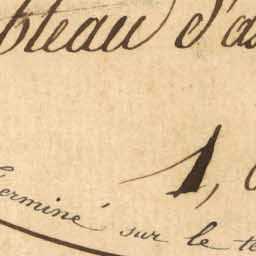 bleau d'a
1,
Terminé sur le te